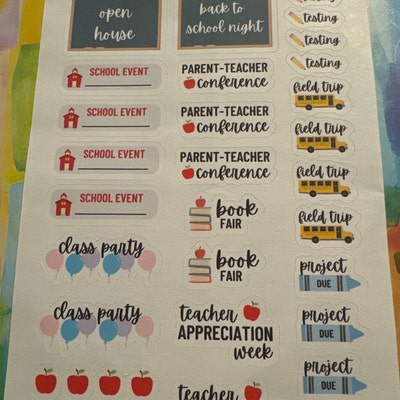 open
house
back to
school night
testing
testing
testing
SCHOOL EVENT
SCHOOL EVENT
SCHOOL EVENT
SCHOOL EVENT
PARENT-TEACHER
conference
PARENT-TEACHER
conference
PARENT-TEACHER
conference
field trip
field trip
field trip
field trip
book
FAIR
book
FAIR
class party
class party
teacher
APPRECIATION
week
teacher
project
DUE
project
DUE
project
DUE